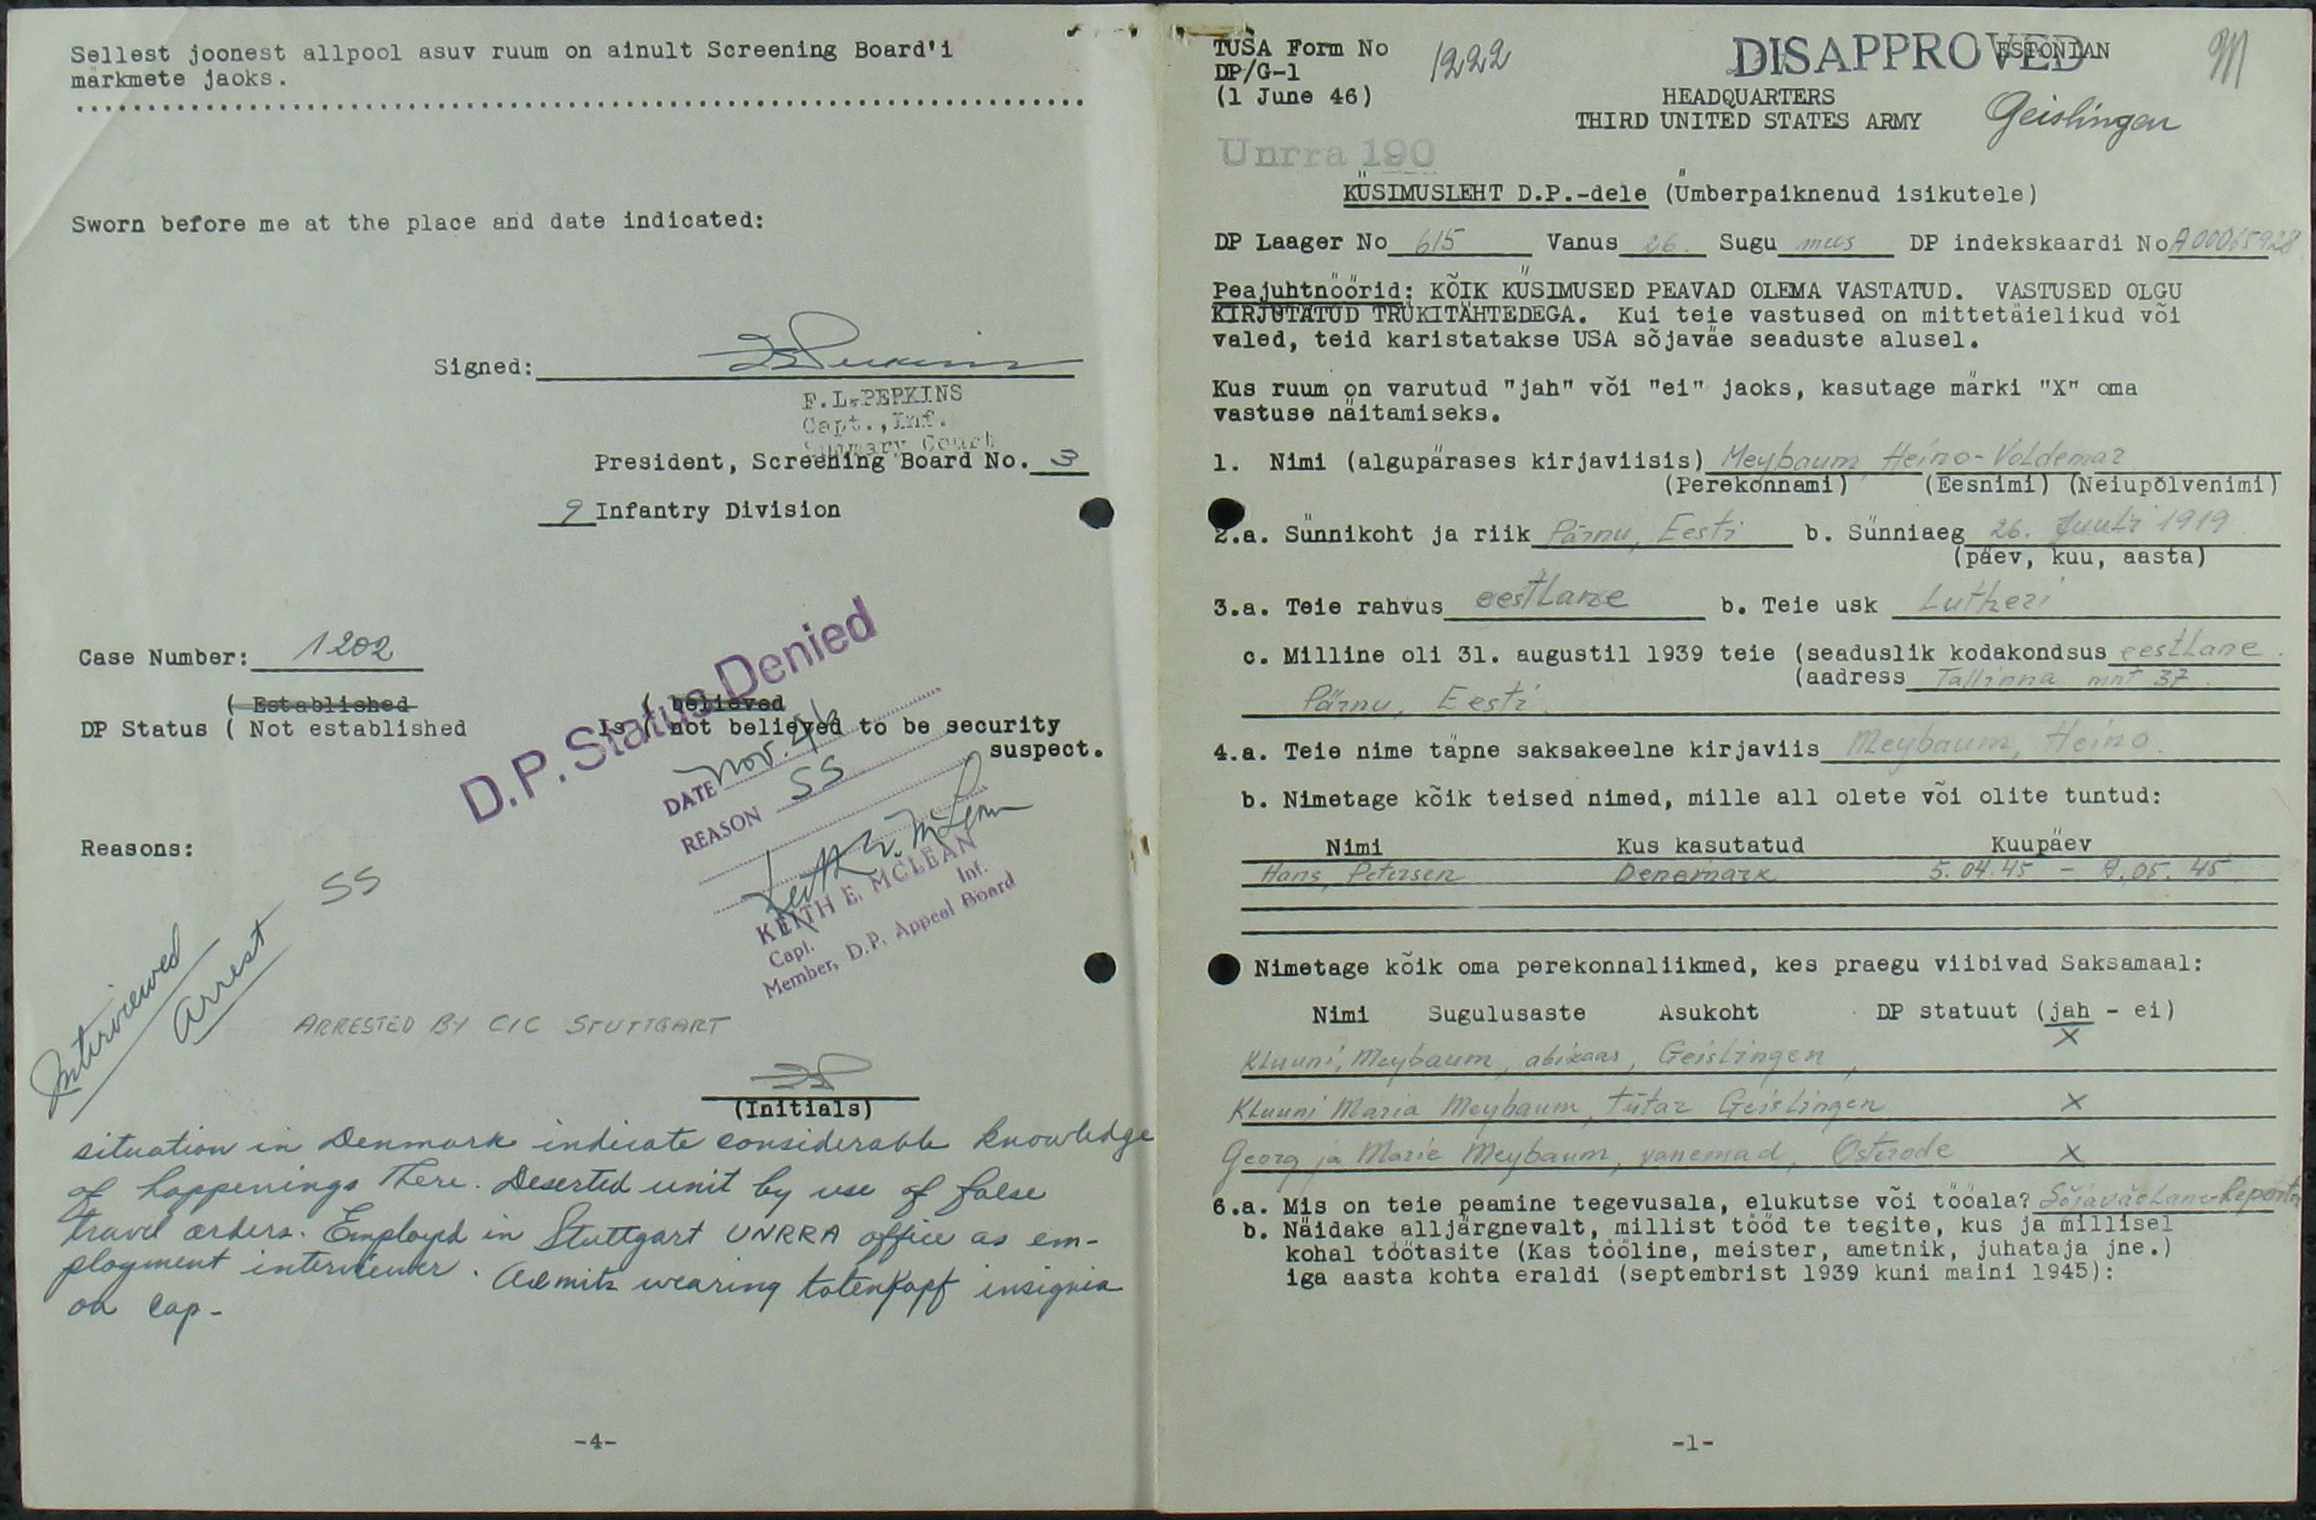 Sellest joonest allpool asuv ruum on ainult Screening Board'i
märkmete jaoks.
Sworn before me at the place and date indicated:
Signed:
F. L. PERKINS
Capt., Inf.
Summary Court
President, Screening Board No. 3
9 Infantry Division
Case Number: 1202
( Established
DP Status ( Not established
( believed
Is ( not believed to be security
suspect.
D.P. Status Denied
DATE Nov. 4
REASON SS
Keith E. McLean
KEITH E. MCLEAN
Capt. Inf.
Member, D.P. Appeal Board
Reasons:
SS
Interviewed
Arrest
ARRESTED BY CIC STUTTGART
(Initials)
situation in Denmark indicate considerable knowledge
of happenings there. Deserted unit by use of false
travel orders. Employed in Stuttgart UNRRA office as em-
ployment interviewer. Admits wearing totenkopf insignia
on cap-
-4-
TUSA Form No
DP/G-1
(1 June 46)
1222
DISAPPROVED
ESTONIAN
M
HEADQUARTERS
THIRD UNITED STATES ARMY
Geislingen
Unrra 190
KÜSIMUSLEHT D.P.-dele (Ümberpaiknenud isikutele)
DP Laager No 615 Vanus 26. Sugu mees DP indekskaardi No A00065928
Peajuhtnöörid: KÕIK KÜSIMUSED PEAVAD OLEMA VASTATUD. VASTUSED OLGU
KIRJUTATUD TRÜKITÄHTEDEGA. Kui teie vastused on mittetäielikud või
valed, teid karistatakse USA sõjaväe seaduste alusel.
Kus ruum on varutud "jah" või "ei" jaoks, kasutage märki "X" oma
vastuse näitamiseks.
1. Nimi (algupärases kirjaviisis) Meybaum, Heino-Voldemar
(Perekonnami) (Eesnimi) (Neiupõlvenimi)
2.a. Sünnikoht ja riik Pärnu, Eesti b. Sünniaeg 26. Juuli 1919
(päev, kuu, aasta)
3.a. Teie rahvus eestlane b. Teie usk Lutheri
c. Milline oli 31. augustil 1939 teie (seaduslik kodakondsus eestlane.
(aadress Tallinna mnt 37.
Pärnu, Eesti.
4.a. Teie nime täpne saksakeelne kirjaviis Meybaum, Heino.
b. Nimetage kõik teised nimed, mille all olete või olite tuntud:
Nimi Kus kasutatud Kuupäev
Hans, Petersen Denemark 5.04.45 - 9.05.45
Nimetage kõik oma perekonnaliikmed, kes praegu viibivad Saksamaal:
Nimi Sugulusaste Asukoht DP statuut (jah - ei)
Kluuni, Meybaum, abikaas, Geislingen, X
Kluuni Maria Meybaum, tütar Geislingen X
Georg ja Marie Meybaum, vanemad, Osterode X
6.a. Mis on teie peamine tegevusala, elukutse või tööala? Sõjaväelane-Reporter
b. Näidake alljärgnevalt, millist tööd te tegite, kus ja millisel
kohal töötasite (Kas tööline, meister, ametnik, juhataja jne.)
iga aasta kohta eraldi (septembrist 1939 kuni maini 1945):
-1-